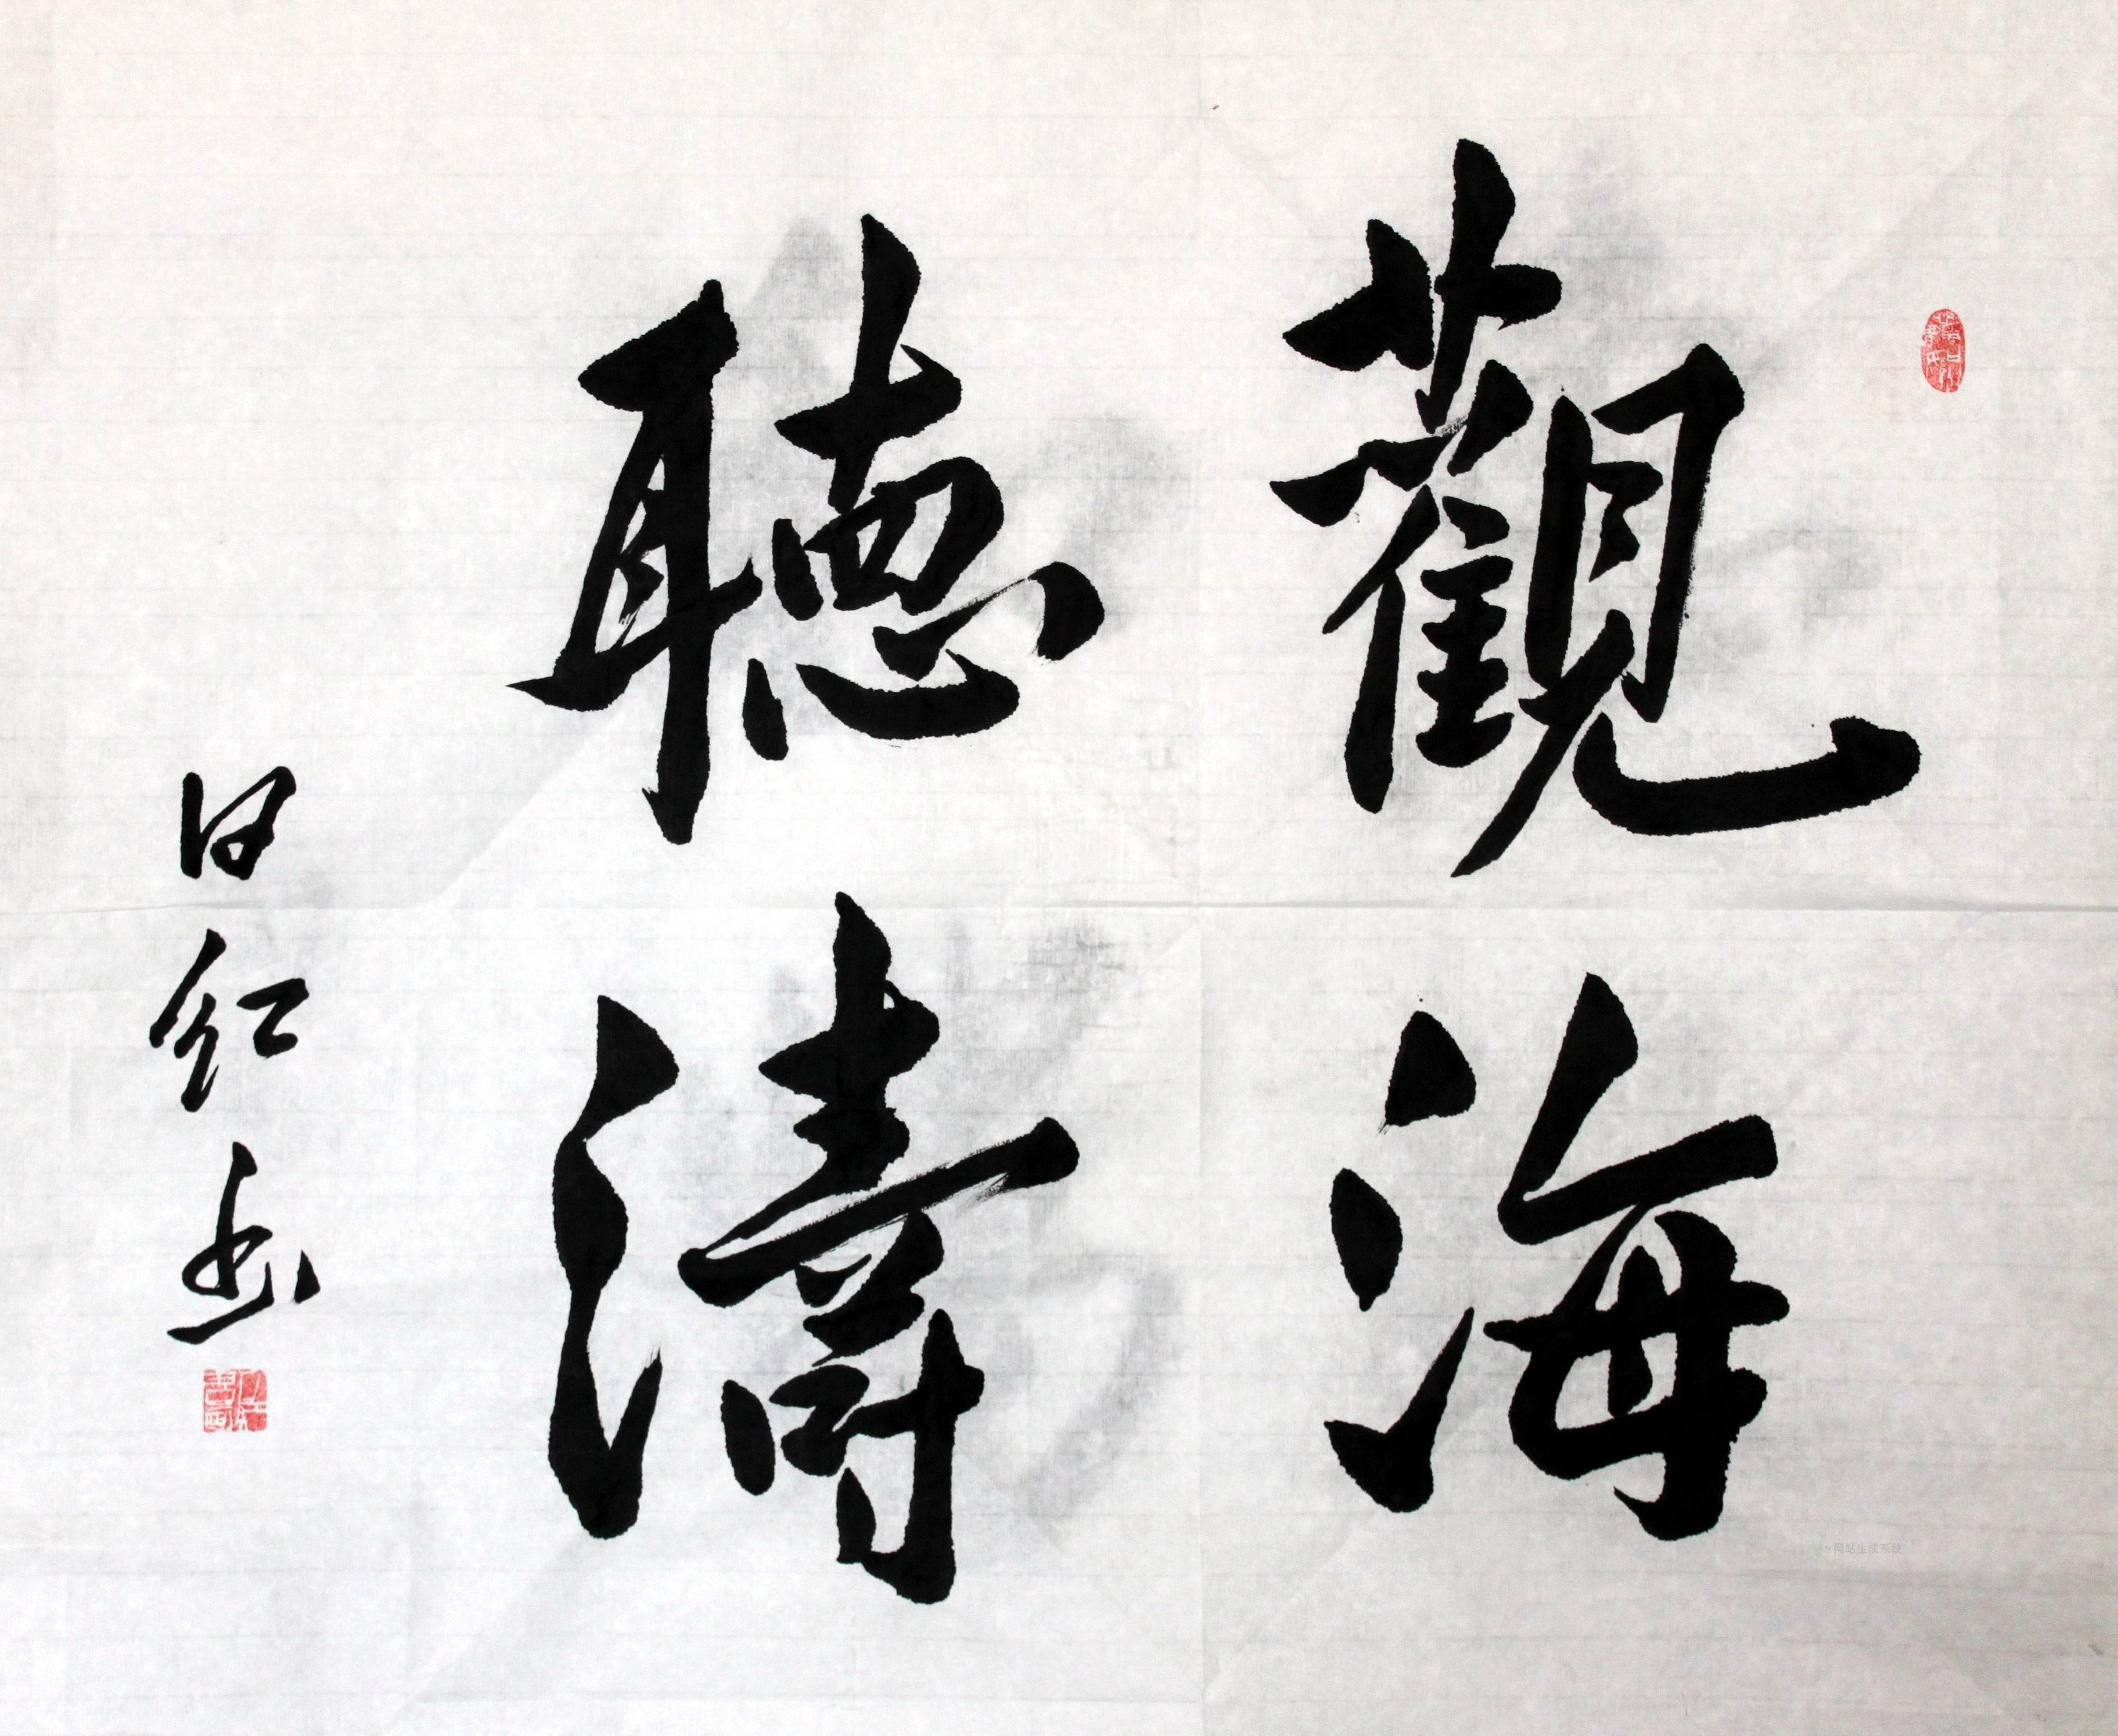 觀海
聽濤
日紅书
网站生成系统